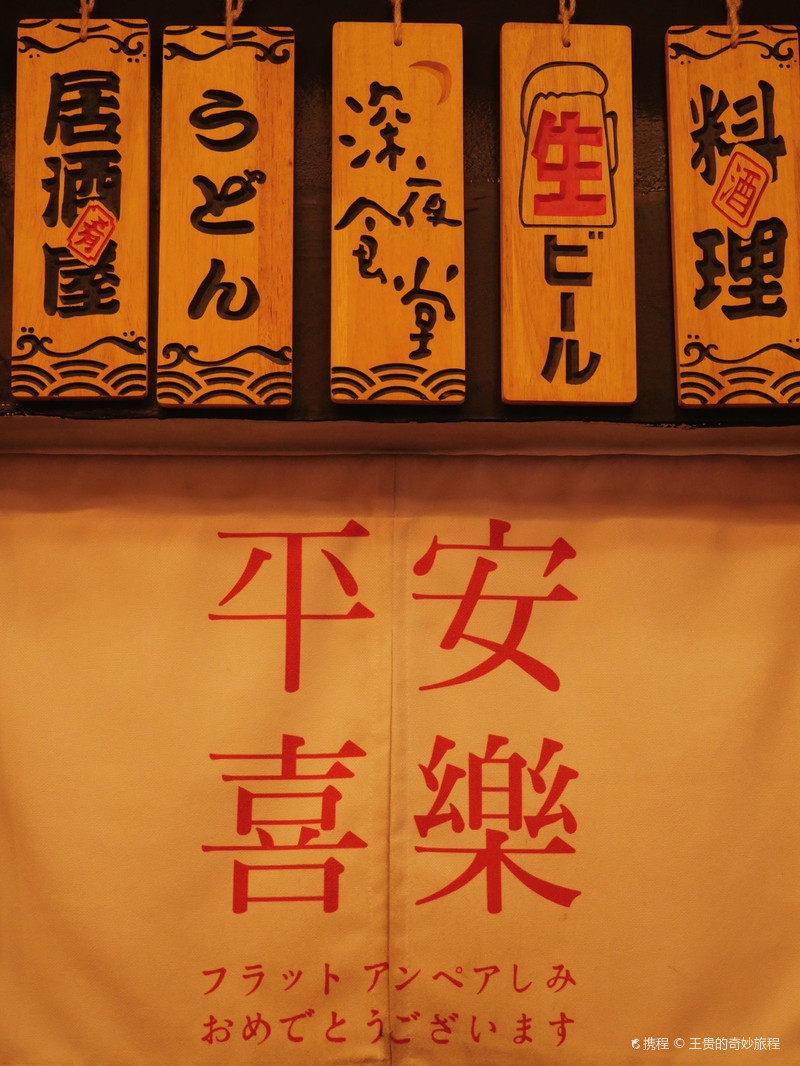 居酒屋
肴
うどん
深夜食堂
生ビール
料理
酒
平安
喜樂
フラット アンペアしみ
おめでとうございます
携程 © 王贵的奇妙旅程